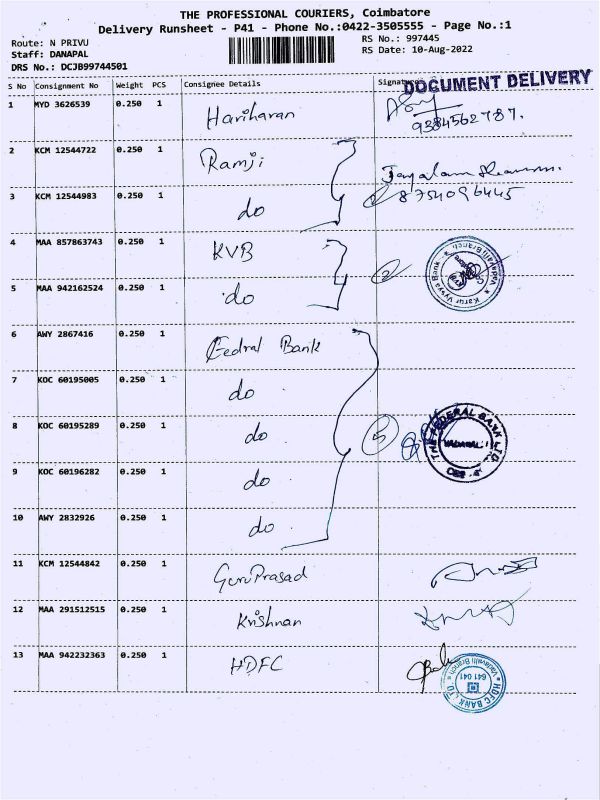 THE PROFESSIONAL COURIERS, Coimbatore
Delivery Runsheet - P41 - Phone No.:0422-3505555 - Page No.:1
Route: N PRIVU
RS No.: 997445
Staff: DANAPAL
RS Date: 10-Aug-2022
DRS No.: DCJB99744501
S No Consignment No Weight PCS Consignee Details Signature
DOCUMENT DELIVERY
1 MYD 3626539 0.250 1 Hariharan
9384562787.
2 KCM 12544722 0.250 1 Ramji
3 KCM 12544983 0.250 1 do 2 8754096445
4 MAA 857863743 0.250 1 KVB 2
Karur Vysya Bank * Vadavalli Branch *
5 MAA 942162524 0.250 1 do
6 AWY 2867416 0.250 1 Fedral Bank
7 KOC 60195005 0.250 1 do
8 KOC 60195289 0.250 1 do 5
THE FEDERAL BANK LTD.
9 KOC 60196282 0.250 1 do
10 AWY 2832926 0.250 1 do
11 KCM 12544842 0.250 1 GuruPrasad
12 MAA 291512515 0.250 1 Krishnan
13 MAA 942232363 0.250 1 HDFC
HDFC BANK LTD * Vadavalli Branch *
641 041